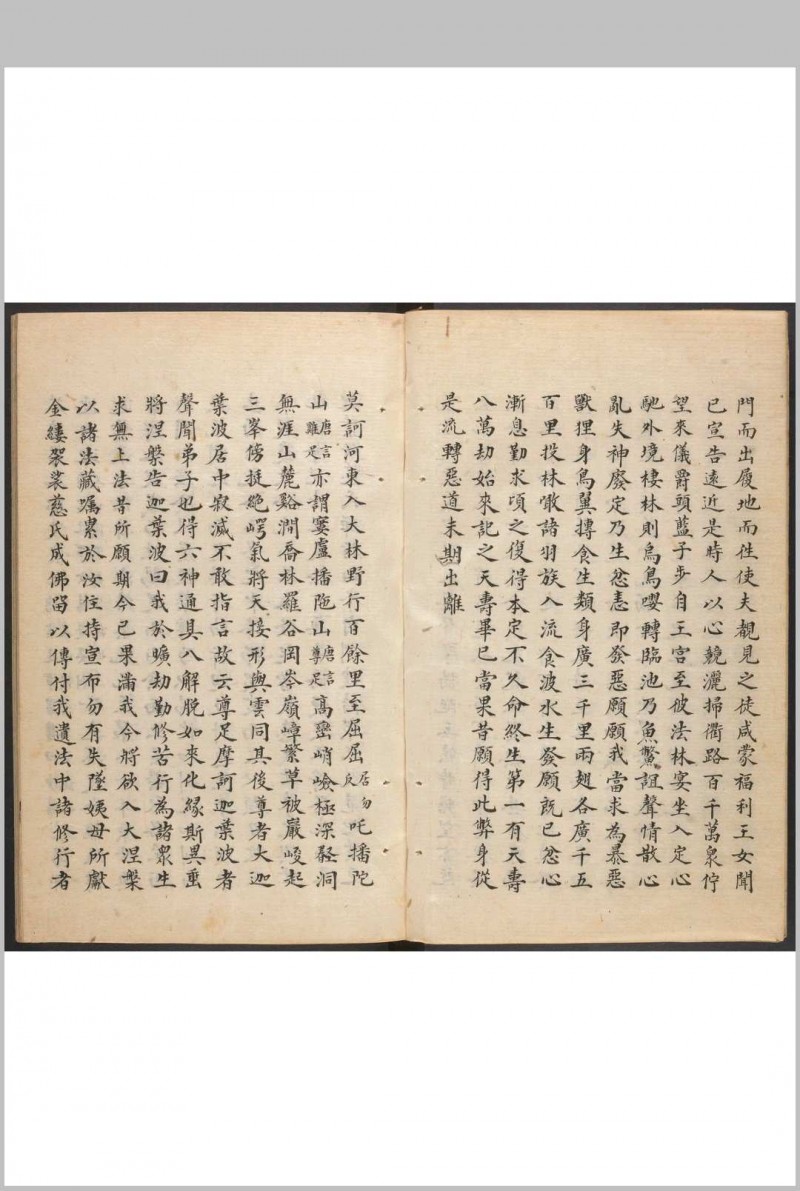 門而出履地而徃使夫覩見之徒咸蒙福利王女聞
已宣告遠近是時人以心競灑掃衢路百千萬衆佇
望來儀爵頭藍子步自王宮至彼法林宴坐入定心
馳外境棲林則烏鳥嚶囀臨池乃魚鱉諠聲情散心
亂失神廢定乃生忿恚即發惡願願我當來為暴惡
獸狸身鳥翼摶食生類身廣三千里兩翅各廣千五
百里投林噉諸羽族入流食波水生發願既已忿心
漸息勤求頃之復得本定不久命終生第一有天壽
八萬劫如來記之天壽畢已當果昔願得此弊身從
是流轉惡道未期出離
莫訶河東入大林野行百餘里至屈屈居勿反吒播陀
山唐言雞足亦謂窶盧播陁山唐言尊足高巒峭嶮極深壑洞
無涯山麓谿澗喬林羅谷岡岑嶺嶂繁草被巖峻起
三峯傍挺絶崿氣將天接形與雲同其後尊者大迦
葉波居中寂滅不敢指言故云尊足摩訶迦葉波者
聲聞弟子也得六神通具八解脫如來化緣斯畢垂
將涅槃告迦葉波曰我於曠劫勤修苦行為諸衆生
求無上法昔所願期今已果滿我今將欲入大涅槃
以諸法藏囑累於汝住持宣布勿有失墜姨母所獻
金縷袈裟慈氏成佛留以傳付我遺法中諸修行者